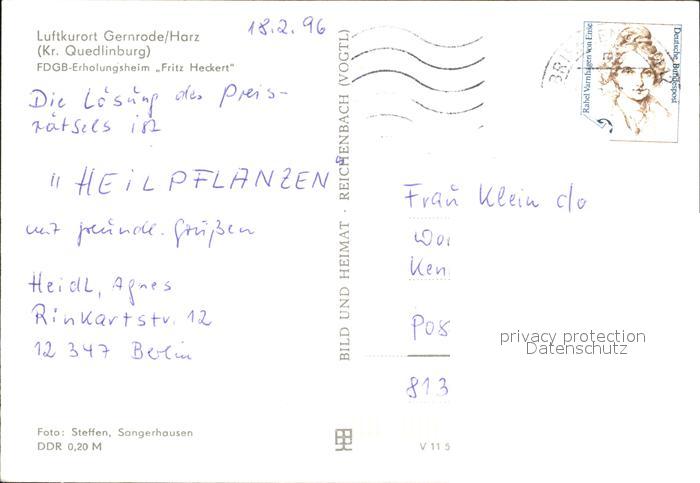 18.2.96
Luftkurort Gernrode/Harz
(Kr. Quedlinburg)
FDGB-Erholungsheim „Fritz Heckert"
Die Lösung des Preis-
rätsels ist
"HEILPFLANZEN"
mit freundl. Grüßen
Heidl, Agnes
Rinkartstr. 12
12 347 Berlin
Foto: Steffen, Sangerhausen
DDR 0,20 M
BILD UND HEIMAT · REICHENBACH (VOGTL)
V 11 5
Rahel Varnhagen von Ense
Deutsche Bundespost
Frau Klein c/o
Ken
Pos
813
privacy protection
Datenschutz